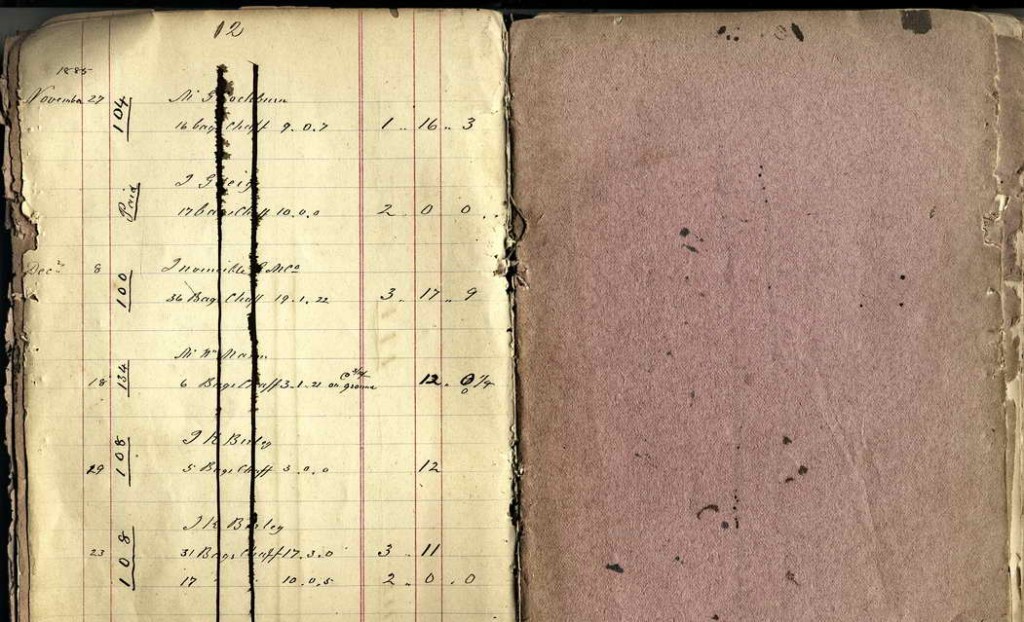 12
1885
November 27 104 Mr G Cockburn
16 bags Chaff 9.0.7 1 .. 16 .. 3
Paid J Greig
17 bags Chaff 10.0.0 2 .. 0 0 ..
Decr 8 100 Invincible
36 Bags Chaff 19.1.22 3 .. 17 .. 9
Mr
18 134 6 Bags Chaff 3.1.21 on ground 12 .. 0 1/4
J K Birley
29 108 5 Bags Chaff 3.0.0 12
J K Birley
23 108 31 Bags Chaff 17.3.0 3 .. 11
17 " " 10.0.5 2 .. 0 .. 0